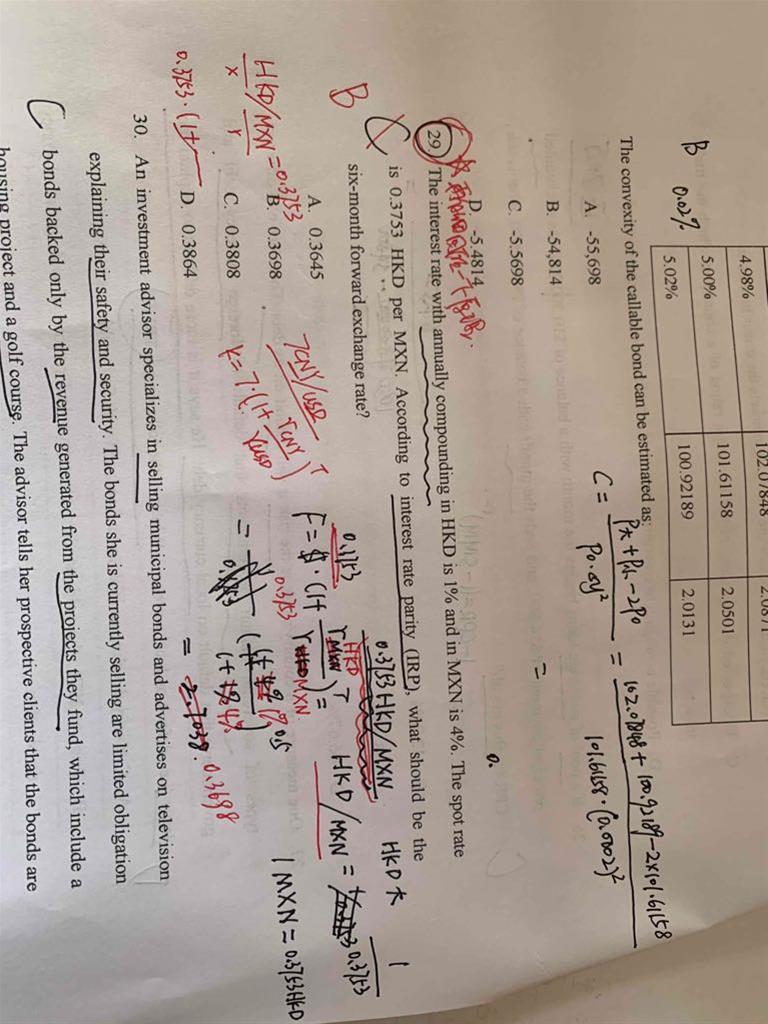 102.07848 2.0871
4.98% 101.61158 2.0501
5.00% 100.92189 2.0131
5.02%
B 0.02%
The convexity of the callable bond can be estimated as:
A. -55,698
B. -54,814
C. -5.5698
D. -5.4814
C = P+ + P- - 2P0 / P0·Δy² = 102.07848 + 100.92189 - 2×101.61158 / 101.6158·(0.0002)²
=
0.
29. The interest rate with annually compounding in HKD is 1% and in MXN is 4%. The spot rate
is 0.3753 HKD per MXN. According to interest rate parity (IRP), what should be the
six-month forward exchange rate?
C
B
A. 0.3645
B. 0.3698
C. 0.3808
D. 0.3864
HKD/MXN = 0.3753
X Y
0.3753·(1+
7CNY/USD
K = 7·(1+ rCNY / rUSD)T
0.3753 HKD/MXN
HKD
1
HKD/MXN = 0.3753
1 MXN = 0.3753HKD
0.3753
F = $·(1+ rHKD / rMXN)T =
= 0.3753 (1+1% / 1+4%)0.5
= 0.3698
30. An investment advisor specializes in selling municipal bonds and advertises on television
explaining their safety and security. The bonds she is currently selling are limited obligation
C bonds backed only by the revenue generated from the projects they fund, which include a
housing project and a golf course. The advisor tells her prospective clients that the bonds are